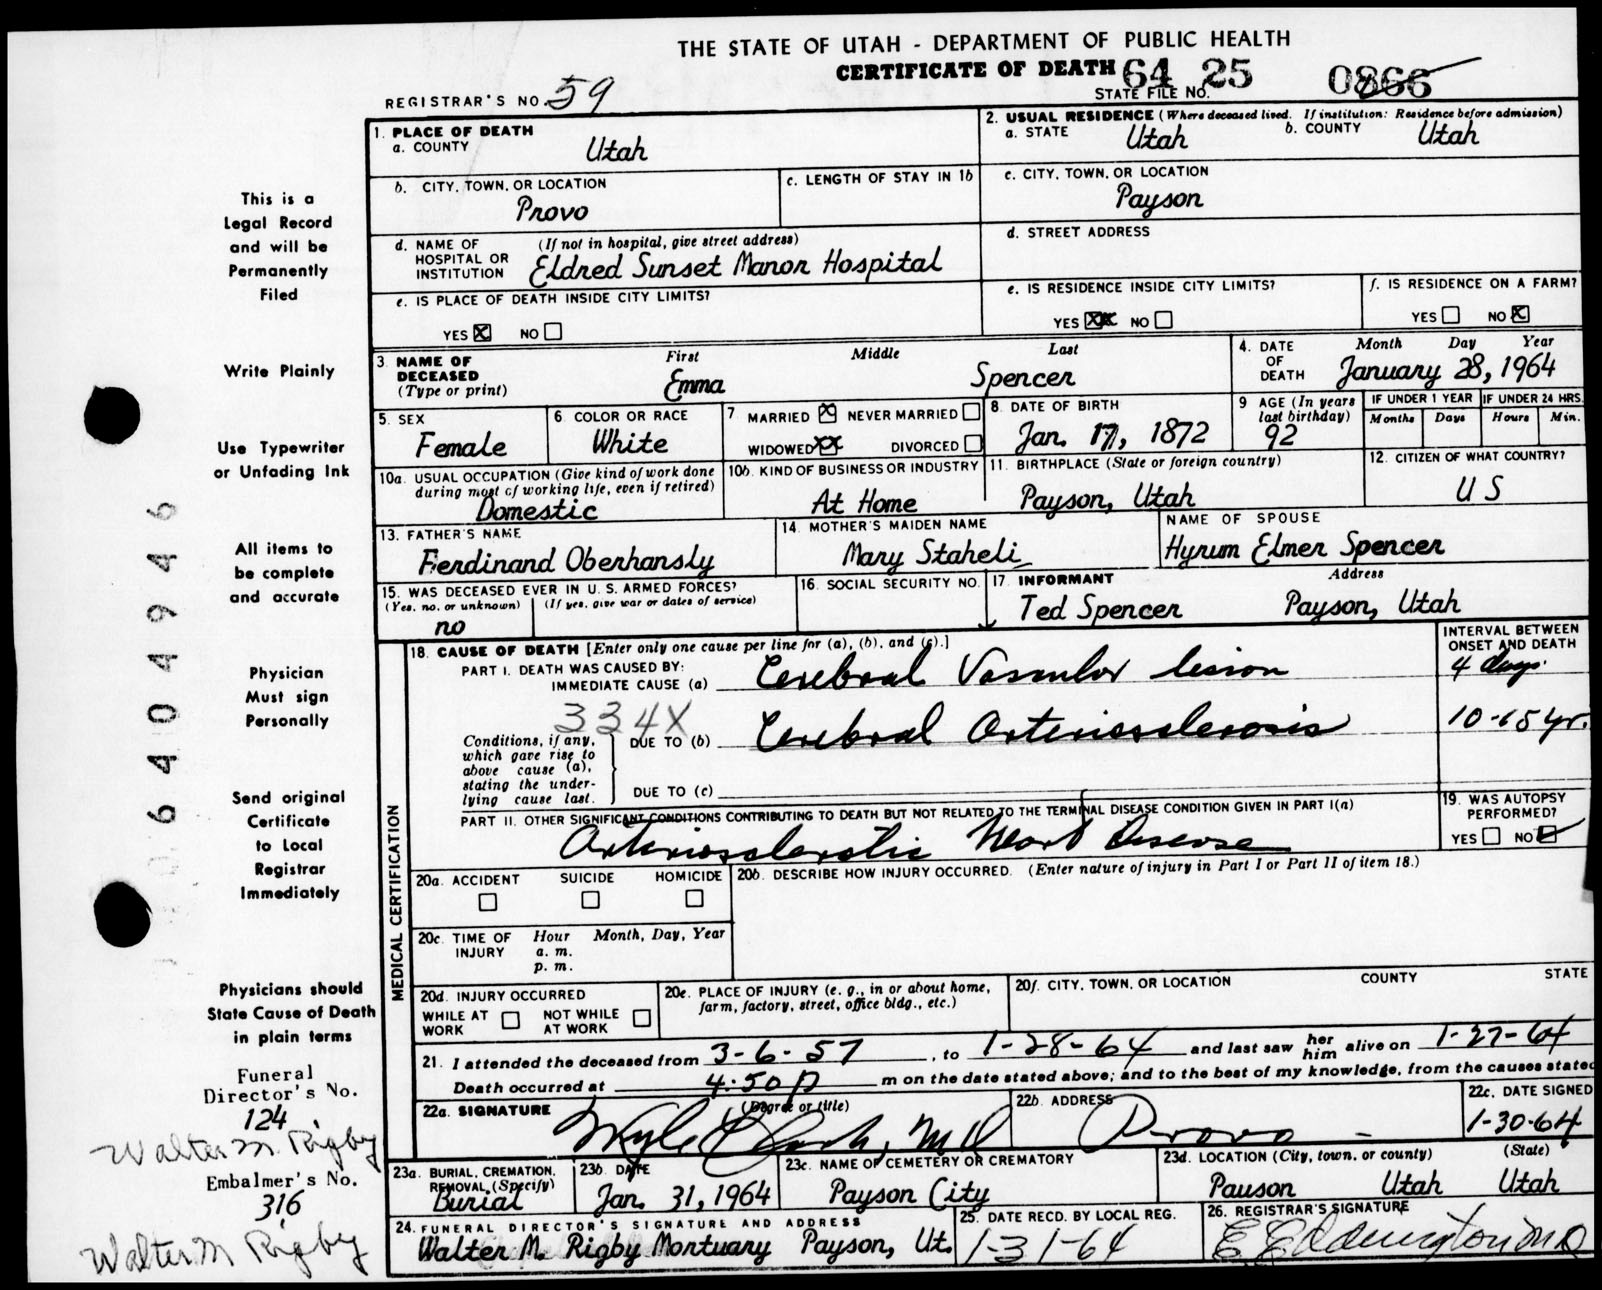 THE STATE OF UTAH - DEPARTMENT OF PUBLIC HEALTH
CERTIFICATE OF DEATH 64 25 0866
STATE FILE NO.
REGISTRAR'S NO. 59
1. PLACE OF DEATH
a. COUNTY Utah
2. USUAL RESIDENCE (Where deceased lived. If institution: Residence before admission)
a. STATE Utah b. COUNTY Utah
b. CITY, TOWN, OR LOCATION Provo
c. LENGTH OF STAY IN 1b
c. CITY, TOWN, OR LOCATION Payson
d. NAME OF HOSPITAL OR INSTITUTION (If not in hospital, give street address) Eldred Sunset Manor Hospital
d. STREET ADDRESS
e. IS PLACE OF DEATH INSIDE CITY LIMITS?
YES X NO
e. IS RESIDENCE INSIDE CITY LIMITS?
YES XX NO
f. IS RESIDENCE ON A FARM?
YES NO X
3. NAME OF DECEASED (Type or print)
First Middle Last
Emma Spencer
4. DATE OF DEATH Month Day Year
January 28, 1964
5. SEX Female
6. COLOR OR RACE White
7. MARRIED X NEVER MARRIED
WIDOWED XX DIVORCED
8. DATE OF BIRTH Jan. 17, 1872
9. AGE (In years last birthday) 92
IF UNDER 1 YEAR Months Days
IF UNDER 24 HRS. Hours Min.
10a. USUAL OCCUPATION (Give kind of work done during most of working life, even if retired) Domestic
10b. KIND OF BUSINESS OR INDUSTRY At Home
11. BIRTHPLACE (State or foreign country) Payson, Utah
12. CITIZEN OF WHAT COUNTRY? U S
13. FATHER'S NAME Ferdinand Oberhansly
14. MOTHER'S MAIDEN NAME Mary Staheli
NAME OF SPOUSE Hyrum Elmer Spencer
15. WAS DECEASED EVER IN U. S. ARMED FORCES?
(Yes, no, or unknown) (If yes, give war or dates of service)
no
16. SOCIAL SECURITY NO.
17. INFORMANT Address
Ted Spencer Payson, Utah
MEDICAL CERTIFICATION
18. CAUSE OF DEATH [Enter only one cause per line for (a), (b), and (c).]
INTERVAL BETWEEN ONSET AND DEATH
PART I. DEATH WAS CAUSED BY:
IMMEDIATE CAUSE (a) Cerebral Vascular lesion 4 days
334X
Conditions, if any, which gave rise to above cause (a), stating the underlying cause last.
DUE TO (b) Cerebral Arteriosclerosis 10-15 yr.
DUE TO (c)
PART II. OTHER SIGNIFICANT CONDITIONS CONTRIBUTING TO DEATH BUT NOT RELATED TO THE TERMINAL DISEASE CONDITION GIVEN IN PART I(a)
Arteriosclerotic Heart Disease
19. WAS AUTOPSY PERFORMED?
YES NO
20a. ACCIDENT SUICIDE HOMICIDE
20b. DESCRIBE HOW INJURY OCCURRED. (Enter nature of injury in Part I or Part II of item 18.)
20c. TIME OF INJURY Hour Month, Day, Year
a. m.
p. m.
20d. INJURY OCCURRED
WHILE AT WORK NOT WHILE AT WORK
20e. PLACE OF INJURY (e. g., in or about home, farm, factory, street, office bldg., etc.)
20f. CITY, TOWN, OR LOCATION COUNTY STATE
21. I attended the deceased from 3-6-57, to 1-28-64 and last saw her him alive on 1-27-64
Death occurred at 4:50 P m on the date stated above; and to the best of my knowledge, from the causes stated
22a. SIGNATURE (Degree or title) MD
22b. ADDRESS Provo -
22c. DATE SIGNED 1-30-64
23a. BURIAL, CREMATION, REMOVAL (Specify) Burial
23b. DATE Jan. 31, 1964
23c. NAME OF CEMETERY OR CREMATORY Payson City
23d. LOCATION (City, town, or county) (State)
Pauson Utah Utah
24. FUNERAL DIRECTOR'S SIGNATURE AND ADDRESS
Walter M. Rigby Mortuary Payson, Ut.
25. DATE RECD. BY LOCAL REG. 1-31-64
26. REGISTRAR'S SIGNATURE
E E Eddington MD
This is a
Legal Record
and will be
Permanently
Filed
Write Plainly
Use Typewriter
or Unfading Ink
All items to
be complete
and accurate
Physician
Must sign
Personally
Send original
Certificate
to Local
Registrar
Immediately
Physicians should
State Cause of Death
in plain terms
Funeral
Director's No.
124
Walter M. Rigby
Embalmer's No.
316
Walter M Rigby
6404946